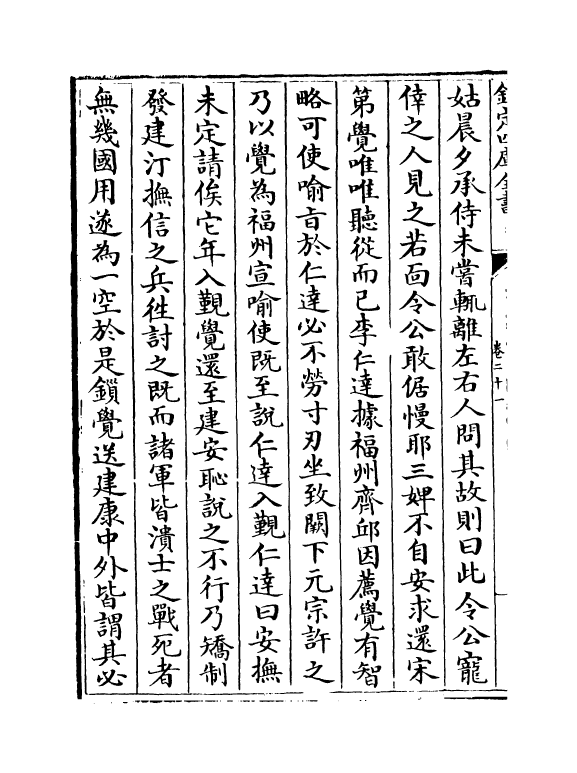 欽定四庫全書
卷二十一
姑晨夕承侍未嘗輒離左右人問其故則曰此令公寵
倖之人見之若面令公敢倨慢耶三婢不自安求還宋
第覺唯唯聽從而已李仁達據福州齊邱因薦覺有智
略可使喻㫖於仁達必不勞寸刃坐致闕下元宗許之
乃以覺為福州宣喻使既至說仁達入覲仁達曰安撫
未定請俟它年入覲覺還至建安恥說之不行乃矯制
發建汀撫信之兵徃討之既而諸軍皆潰士之戰死者
無幾國用遂為一空於是鎖覺送建康中外皆謂其必